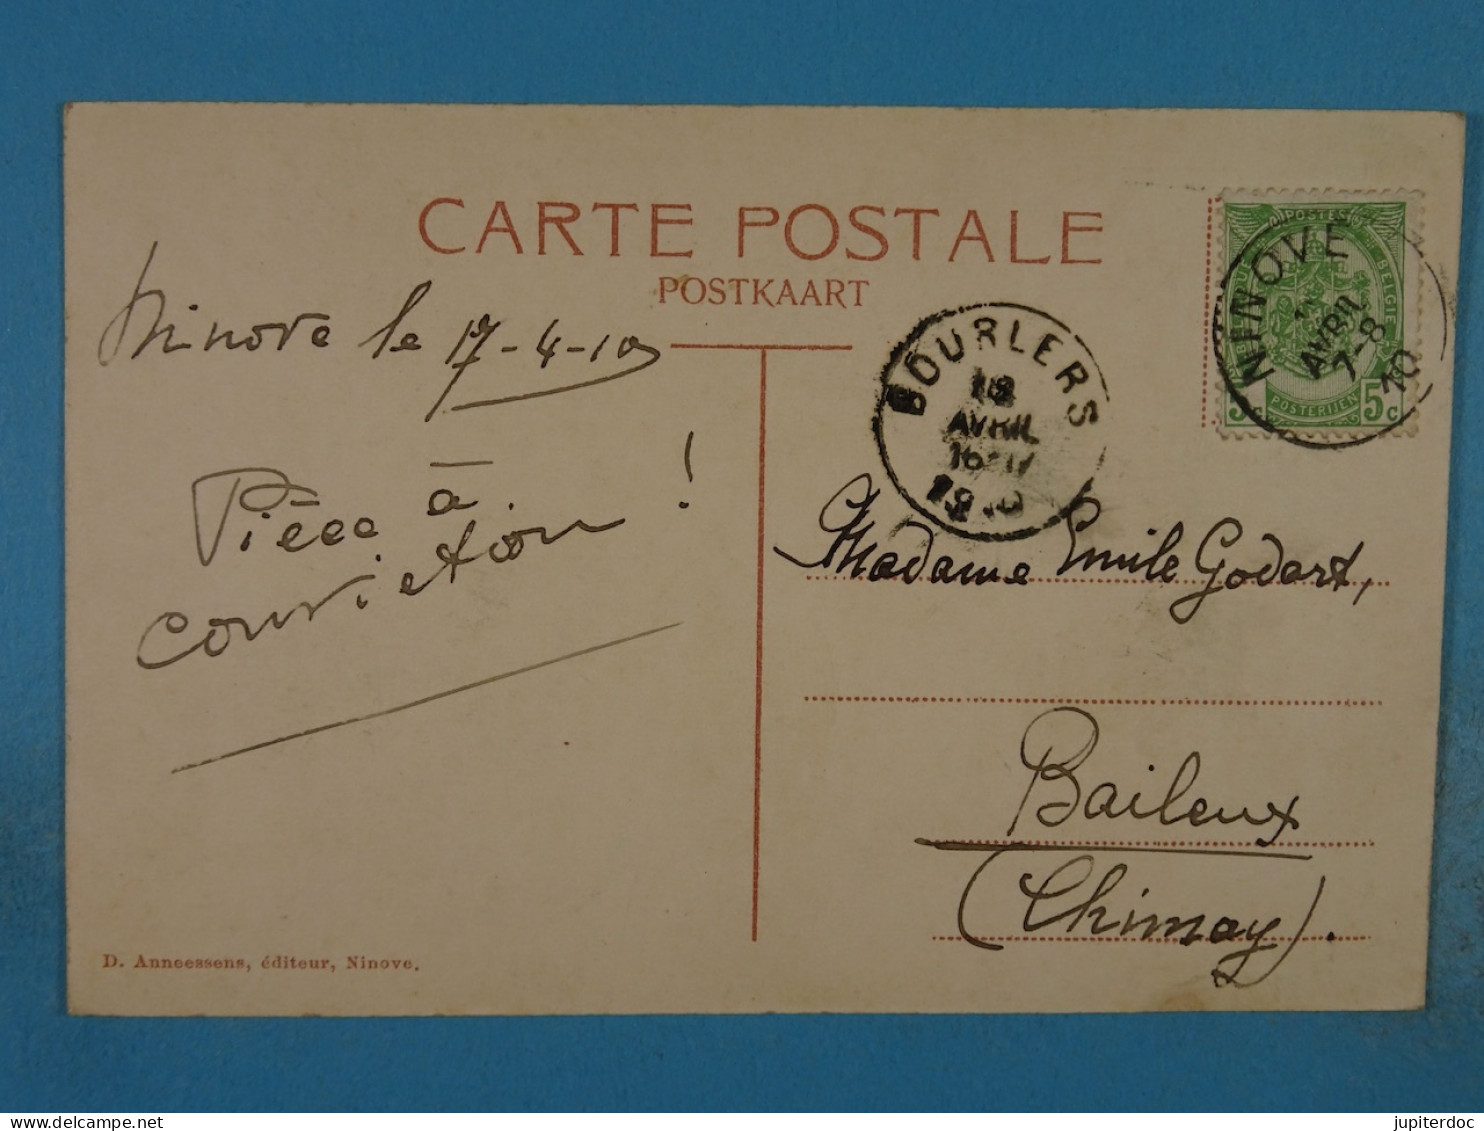 CARTE POSTALE
POSTKAART
Ninove le 17-4-10
Pièce à
conviction !
D. Anneessens, éditeur, Ninove.
POSTES
BELGIE
POSTERIJEN
5 c
NINOVE
AVRIL
7-8
10
BOURLERS
18
AVRIL
16-17
1910
Madame Emile Godart,
Baileux
(Chimay).
jupiterdoc